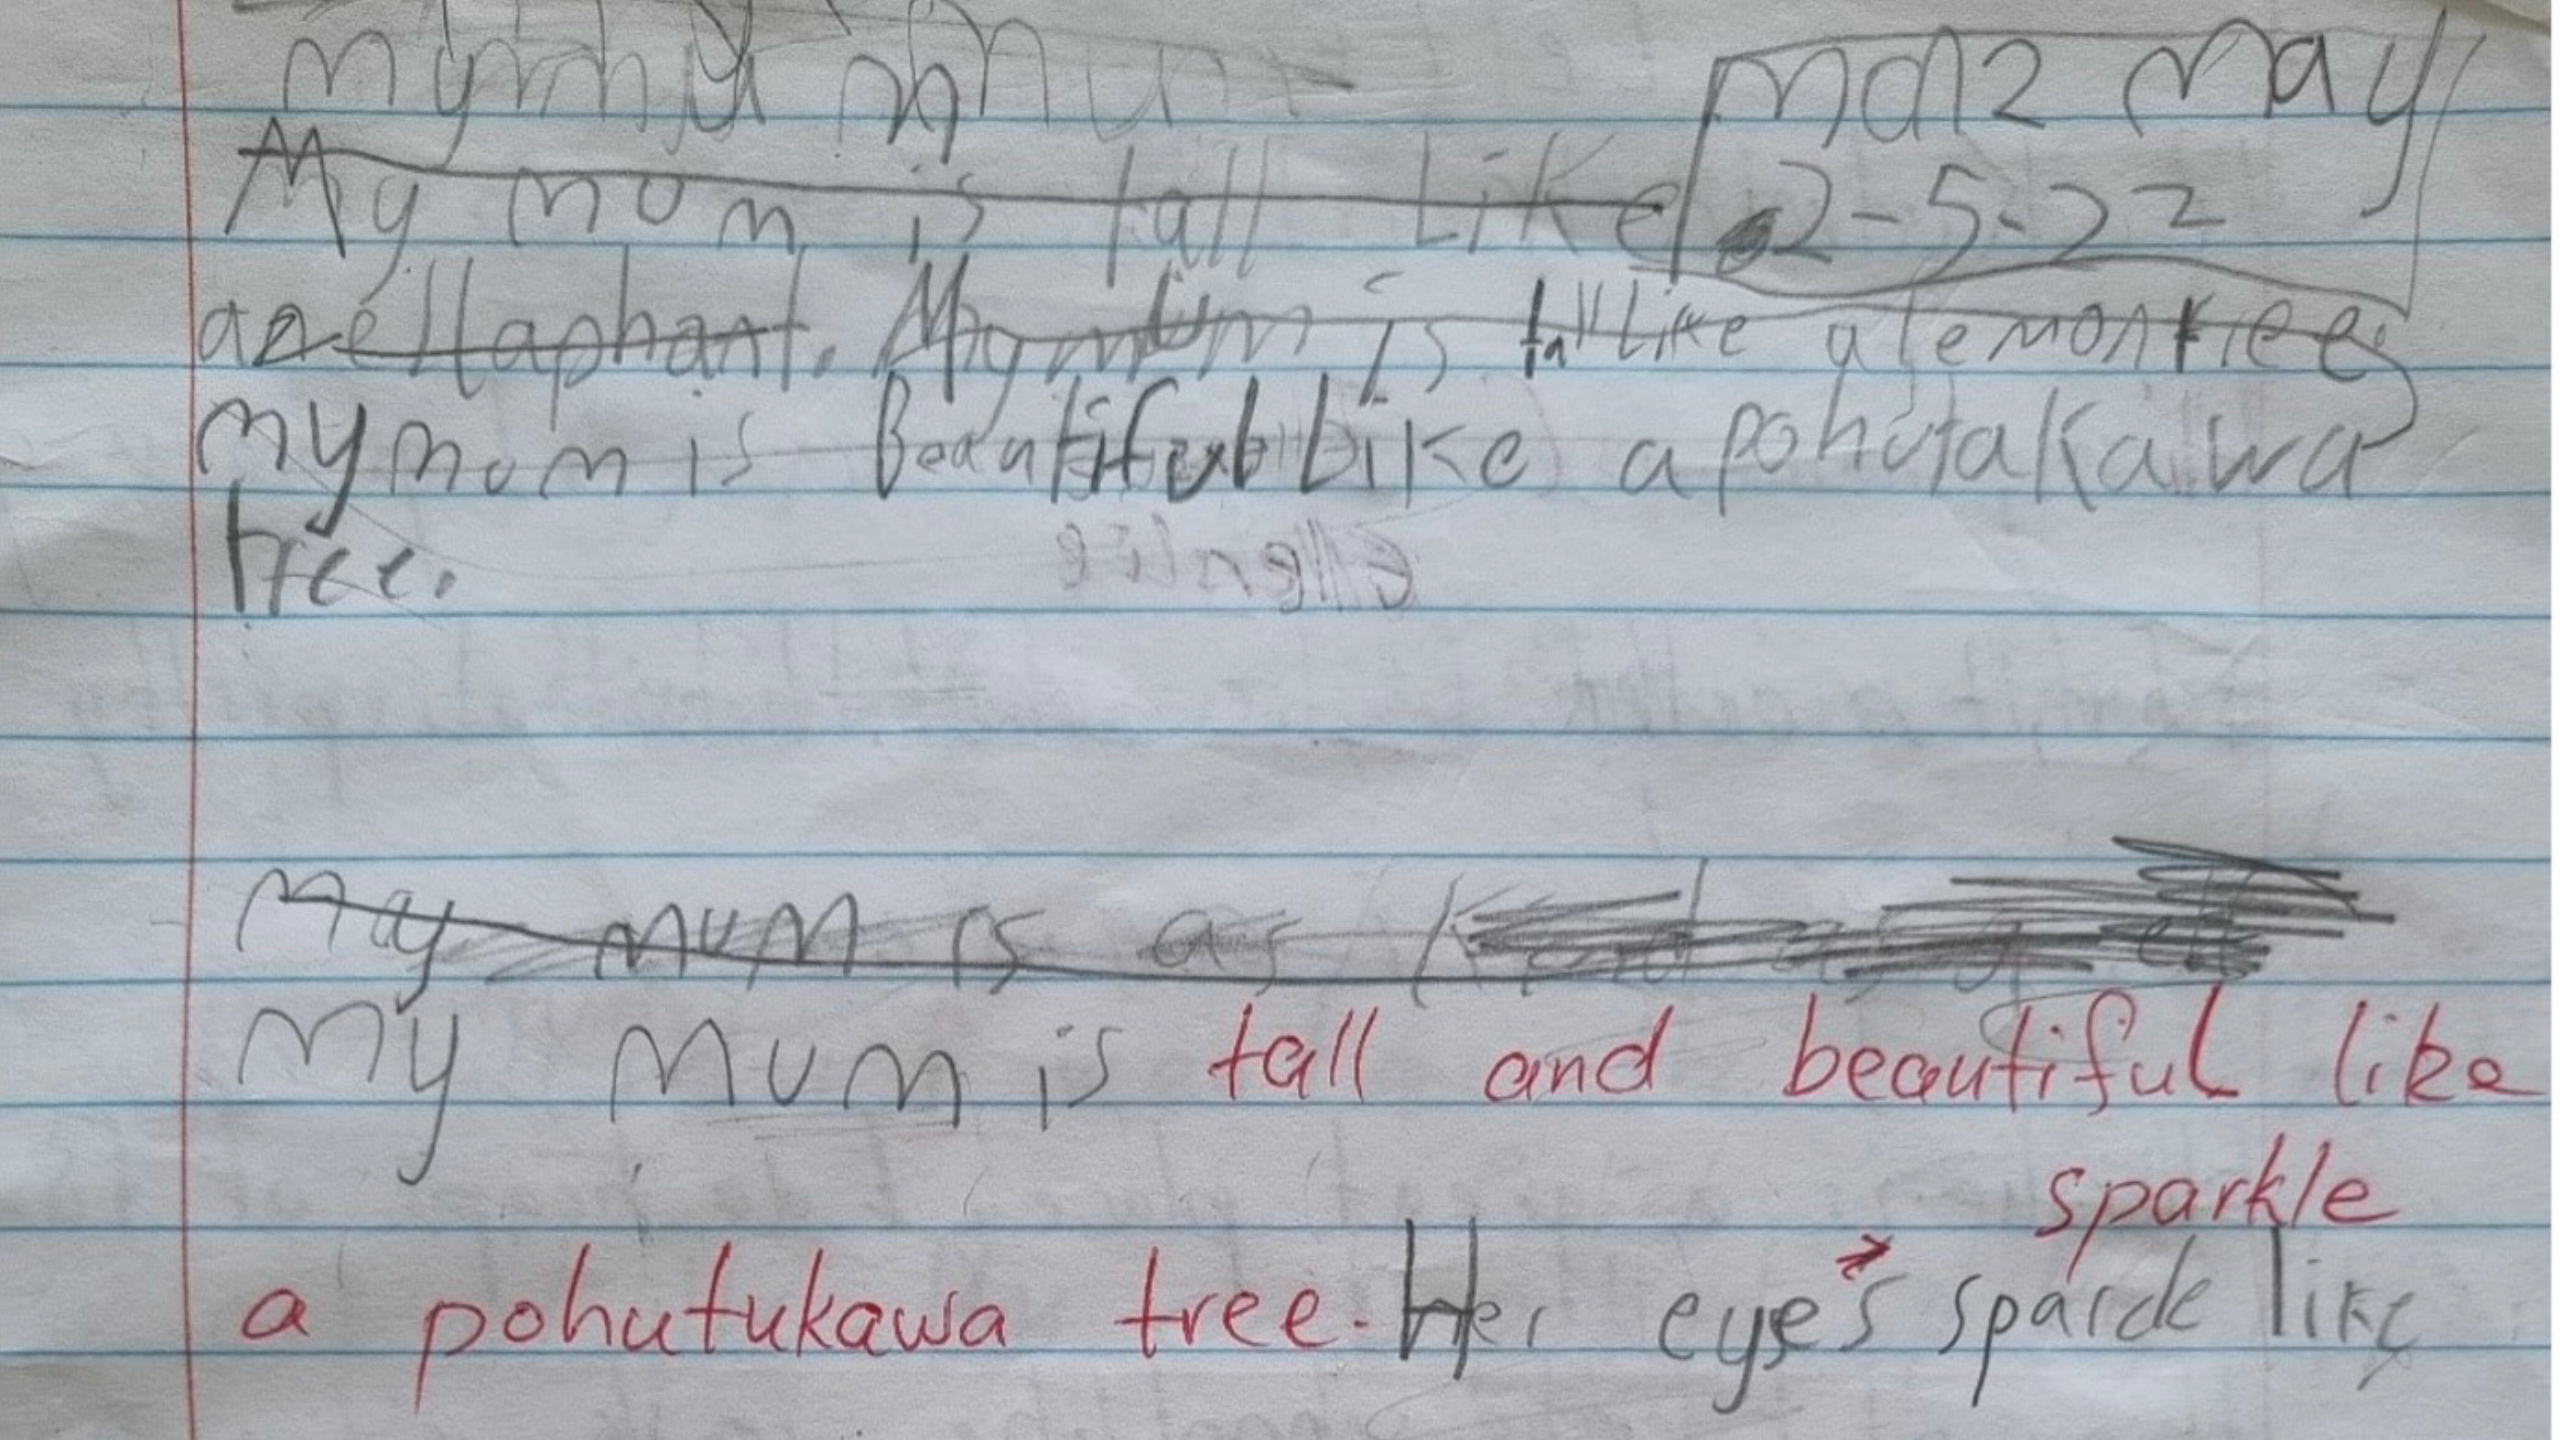 My mum
Mon 2 May
My mum is tall Like
2-5-22
an ellaphant. My mum is tall like a lemon tree.
my mum is Beautiful Like a pohutakawa
tree.
May mum is as
My mum is tall and beautiful like
sparkle
a pohutukawa tree. Her eye's sparcle like